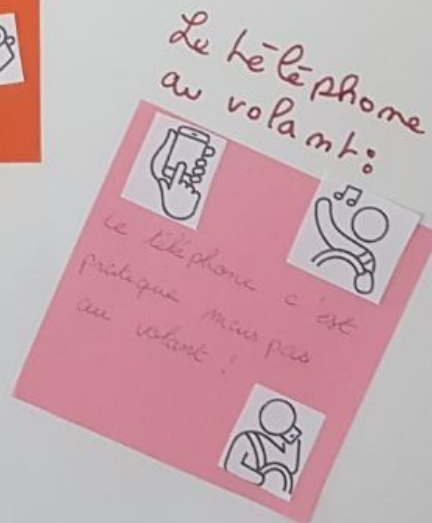 Le téléphone
au volant:
Le téléphone c'est
pratique mais pas
au volant !